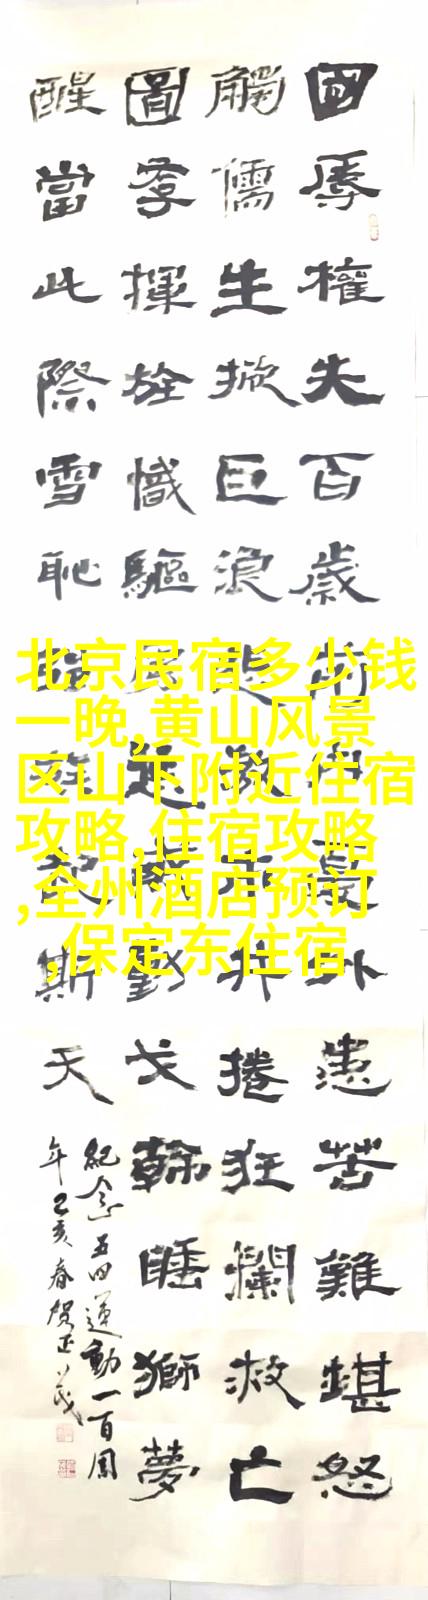 國辱權失百歲前內憂外患苦難堪怒
觸儒生掀巨浪捲狂瀾救亡
圖存揮旌幟驅民動戈幹睡獅夢
醒當此際雪恥起斯天
紀念五四運動一百周
年己亥春賀正
北京民宿多少钱
一晚,黄山风景
区山下附近住宿
攻略,住宿攻略
,全州酒店预订
,保定东住宿